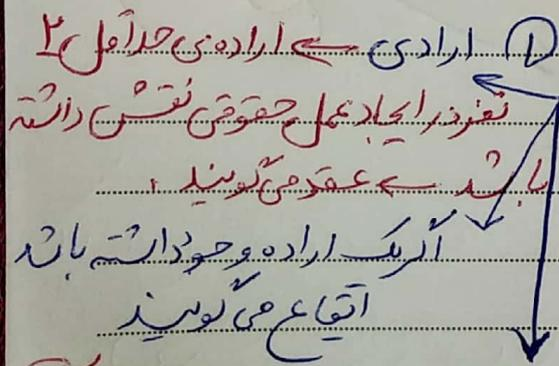 ① ارادی ← اراده‌ی حداقل ۲
نفر در ایجاد عمل حقوقی نقش داشته
باشد ← عقد می‌گویند.
اگر یک اراده وجود داشته باشد
اتیقاع می‌گویند